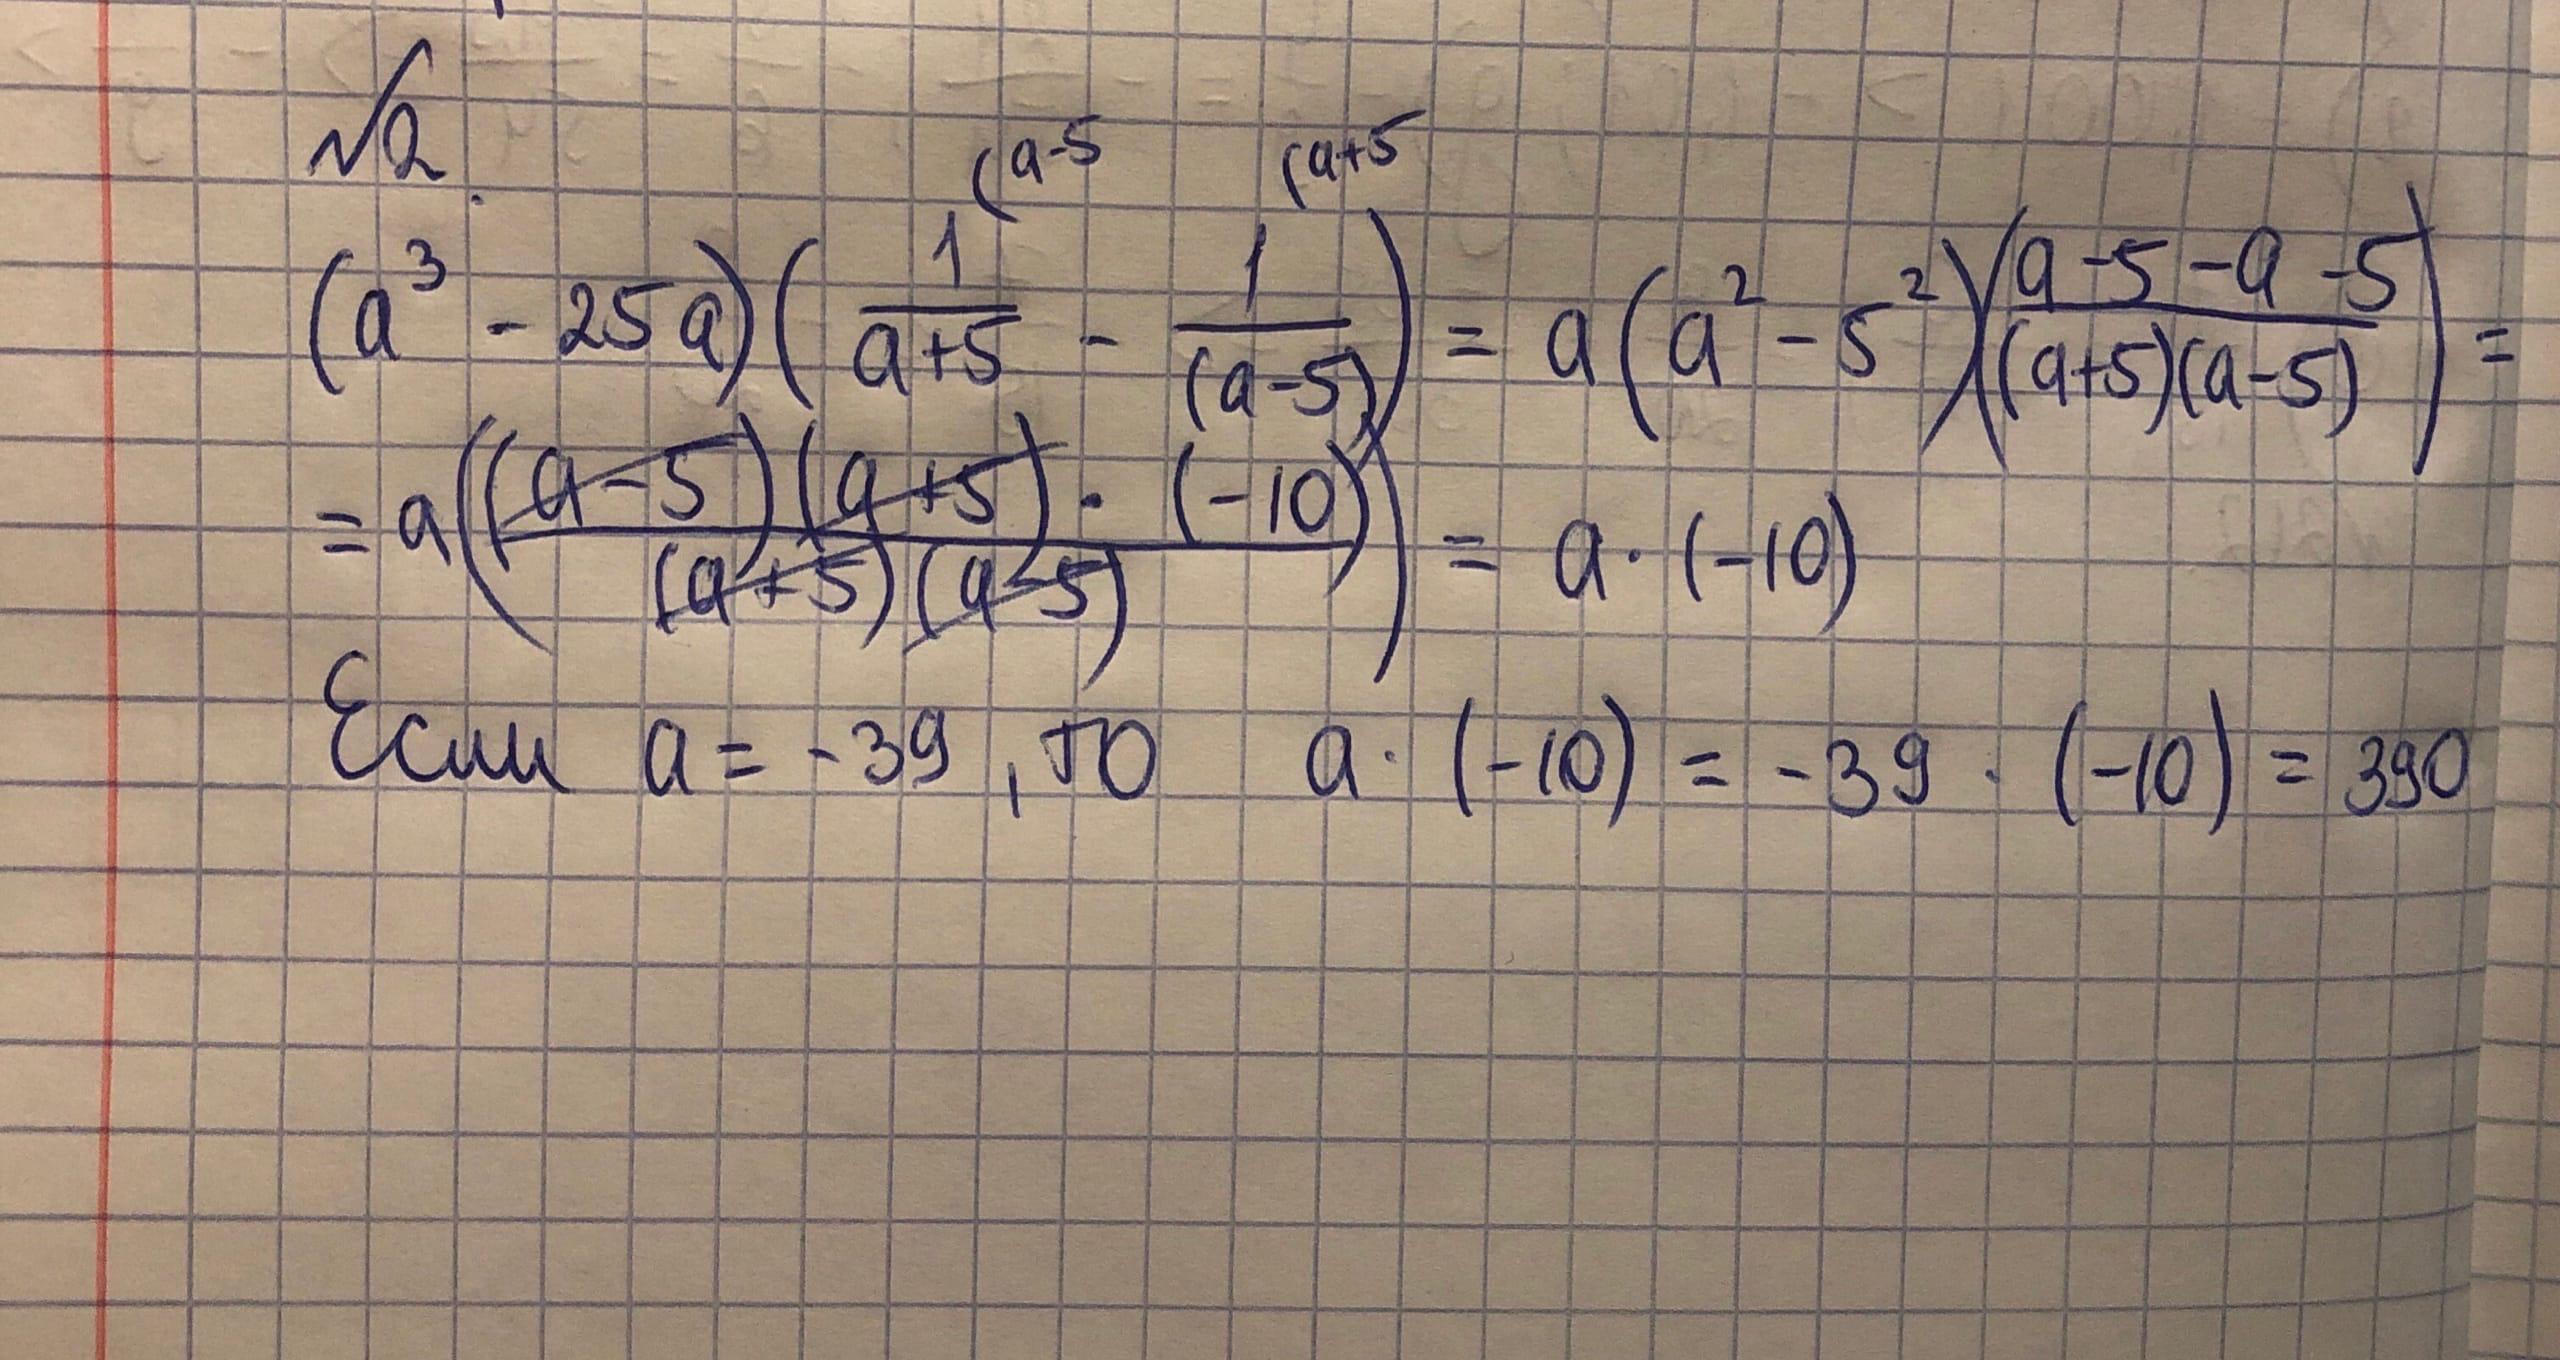 №2.
(a³ - 25a)(1/(a+5) ⁽ᵃ⁻⁵ - 1/(a-5) ⁽ᵃ⁺⁵) = a(a² - 5²)((a-5-a-5)/((a+5)(a-5))) =
= a(((a-5)(a+5)·(-10))/((a+5)(a-5))) = a·(-10)
Если a = -39, то a·(-10) = -39·(-10) = 390